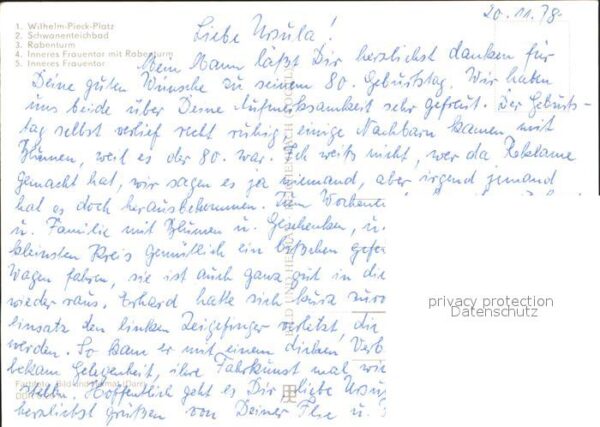 20.11.78
1. Wilhelm-Pieck-Platz
2. Schwanenteichbad
3. Rabenturm
4. Inneres Frauentor mit Rabenturm
5. Inneres Frauentor
Liebe Ursula!
Mein Mann läßt Dir herzlichst danken für
Deine guten Wünsche zu seinem 80. Geburtstag. Wir haben
uns beide über Deine Aufmerksamkeit sehr gefreut. Der Geburts-
tag selbst verlief recht ruhig, einige Nachbarn kamen mit
Blumen, weil es der 80. war. Ich weiß nicht, wer da Reklame
gemacht hat, wir sagen es ja niemand, aber irgend jemand
hat es doch herausbekommen. Zum Wochen
u. Familie mit Blumen u. Geschenken, u.
kleinsten Kreis gemütlich ein bißchen gefei
Wagen fahren, sie ist auch ganz gut in die
wieder raus. Erhard hatte sich kurz
einsatz den linken Zeigefinger verletzt, die
werden. So kam er mit einem dicken Verb
bekam Gelegenheit, ihre Fahrkunst mal
stellen. Hoffentlich geht es Dir, liebe Ursu
herzlichst grüßen von Deiner Ilse u.
privacy protection
Datenschutz